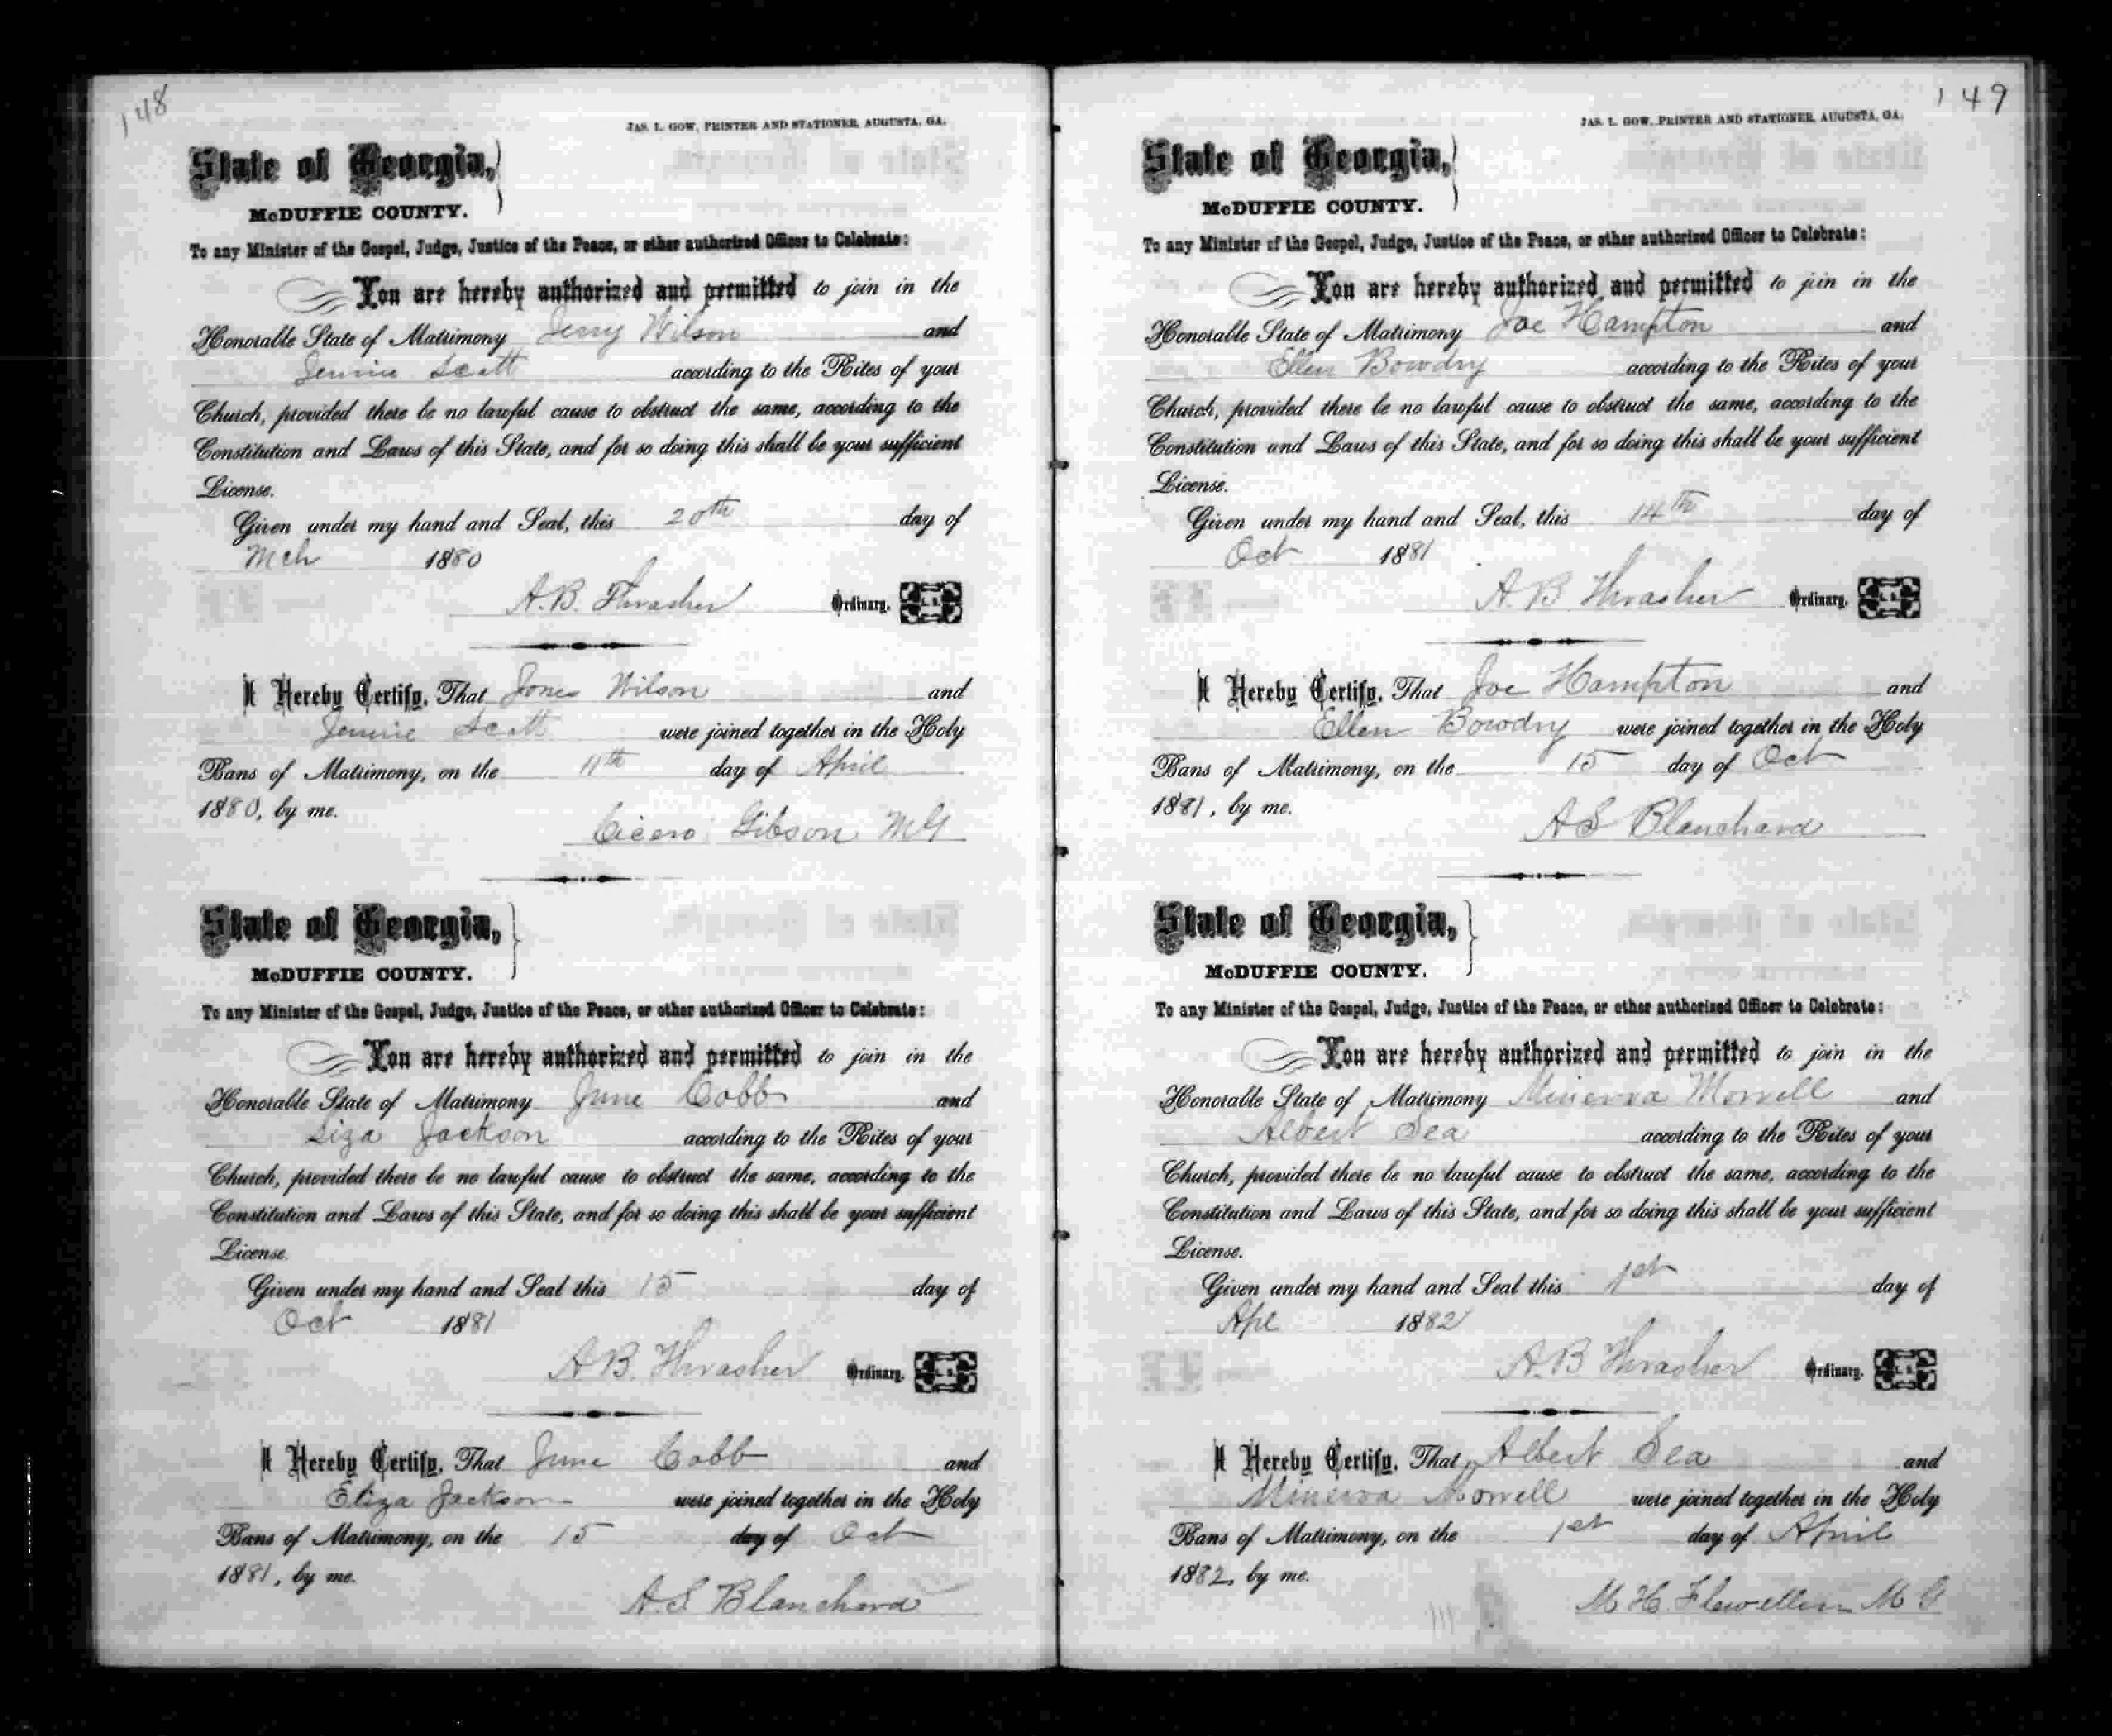 148
JAS. L. GOW, PRINTER AND STATIONER, AUGUSTA, GA.
State of Georgia,
McDUFFIE COUNTY.
To any Minister of the Gospel, Judge, Justice of the Peace, or other authorized Officer to Celebrate:
You are hereby authorized and permitted to join in the
Honorable State of Matrimony Jerry Wilson and
Jennie Scott according to the Rites of your
Church, provided there be no lawful cause to obstruct the same, according to the
Constitution and Laws of this State, and for so doing this shall be your sufficient
License.
Given under my hand and Seal, this 20th day of
Mch 1880
A.B. Thrasher Ordinary. L.S.
I Hereby Certify, That Jones Wilson and
Jennie Scott were joined together in the Holy
Bans of Matrimony, on the 11th day of April
1880, by me.
Cicero Gibson MG
State of Georgia,
McDUFFIE COUNTY.
To any Minister of the Gospel, Judge, Justice of the Peace, or other authorized Officer to Celebrate:
You are hereby authorized and permitted to join in the
Honorable State of Matrimony June Cobb and
Liza Jackson according to the Rites of your
Church, provided there be no lawful cause to obstruct the same, according to the
Constitution and Laws of this State, and for so doing this shall be your sufficient
License.
Given under my hand and Seal this 15 day of
Oct 1881
A.B. Thrasher Ordinary. L.S.
I Hereby Certify, That June Cobb and
Eliza Jackson were joined together in the Holy
Bans of Matrimony, on the 15 day of Oct
1881, by me.
A.S Blanchard
149
JAS. L. GOW, PRINTER AND STATIONER, AUGUSTA, GA.
State of Georgia,
McDUFFIE COUNTY.
To any Minister of the Gospel, Judge, Justice of the Peace, or other authorized Officer to Celebrate:
You are hereby authorized and permitted to join in the
Honorable State of Matrimony Joe Hampton and
Ellen Bowdry according to the Rites of your
Church, provided there be no lawful cause to obstruct the same, according to the
Constitution and Laws of this State, and for so doing this shall be your sufficient
License.
Given under my hand and Seal, this 14th day of
Oct 1881
A.B Thrasher Ordinary. L.S.
I Hereby Certify, That Joe Hampton and
Ellen Bowdry were joined together in the Holy
Bans of Matrimony, on the 15 day of Oct
1881, by me.
AS Blanchard
State of Georgia,
McDUFFIE COUNTY.
To any Minister of the Gospel, Judge, Justice of the Peace, or other authorized Officer to Celebrate:
You are hereby authorized and permitted to join in the
Honorable State of Matrimony Minerva Morrell and
Albert Lea according to the Rites of your
Church, provided there be no lawful cause to obstruct the same, according to the
Constitution and Laws of this State, and for so doing this shall be your sufficient
License.
Given under my hand and Seal this 1st day of
Apl 1882
A.B Thrasher Ordinary. L.S.
I Hereby Certify, That Albert Lea and
Minerva Morrell were joined together in the Holy
Bans of Matrimony, on the 1st day of April
1882, by me.
M H. Flewellen M G